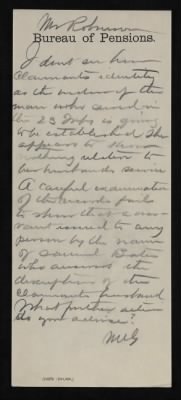 Mr Robinson
Bureau of Pensions.
I dont see how
Claimants identity
as the widow of the
man who served in
the 23 is going
to be established. She
appears to know
nothing relative to
her husbands service
A careful examination
of the records fails
to show that a war-
rant issued to any
person by the name
of Samuel Bates
who answers the
description of this
Claimants husband
What further action
do you advise?